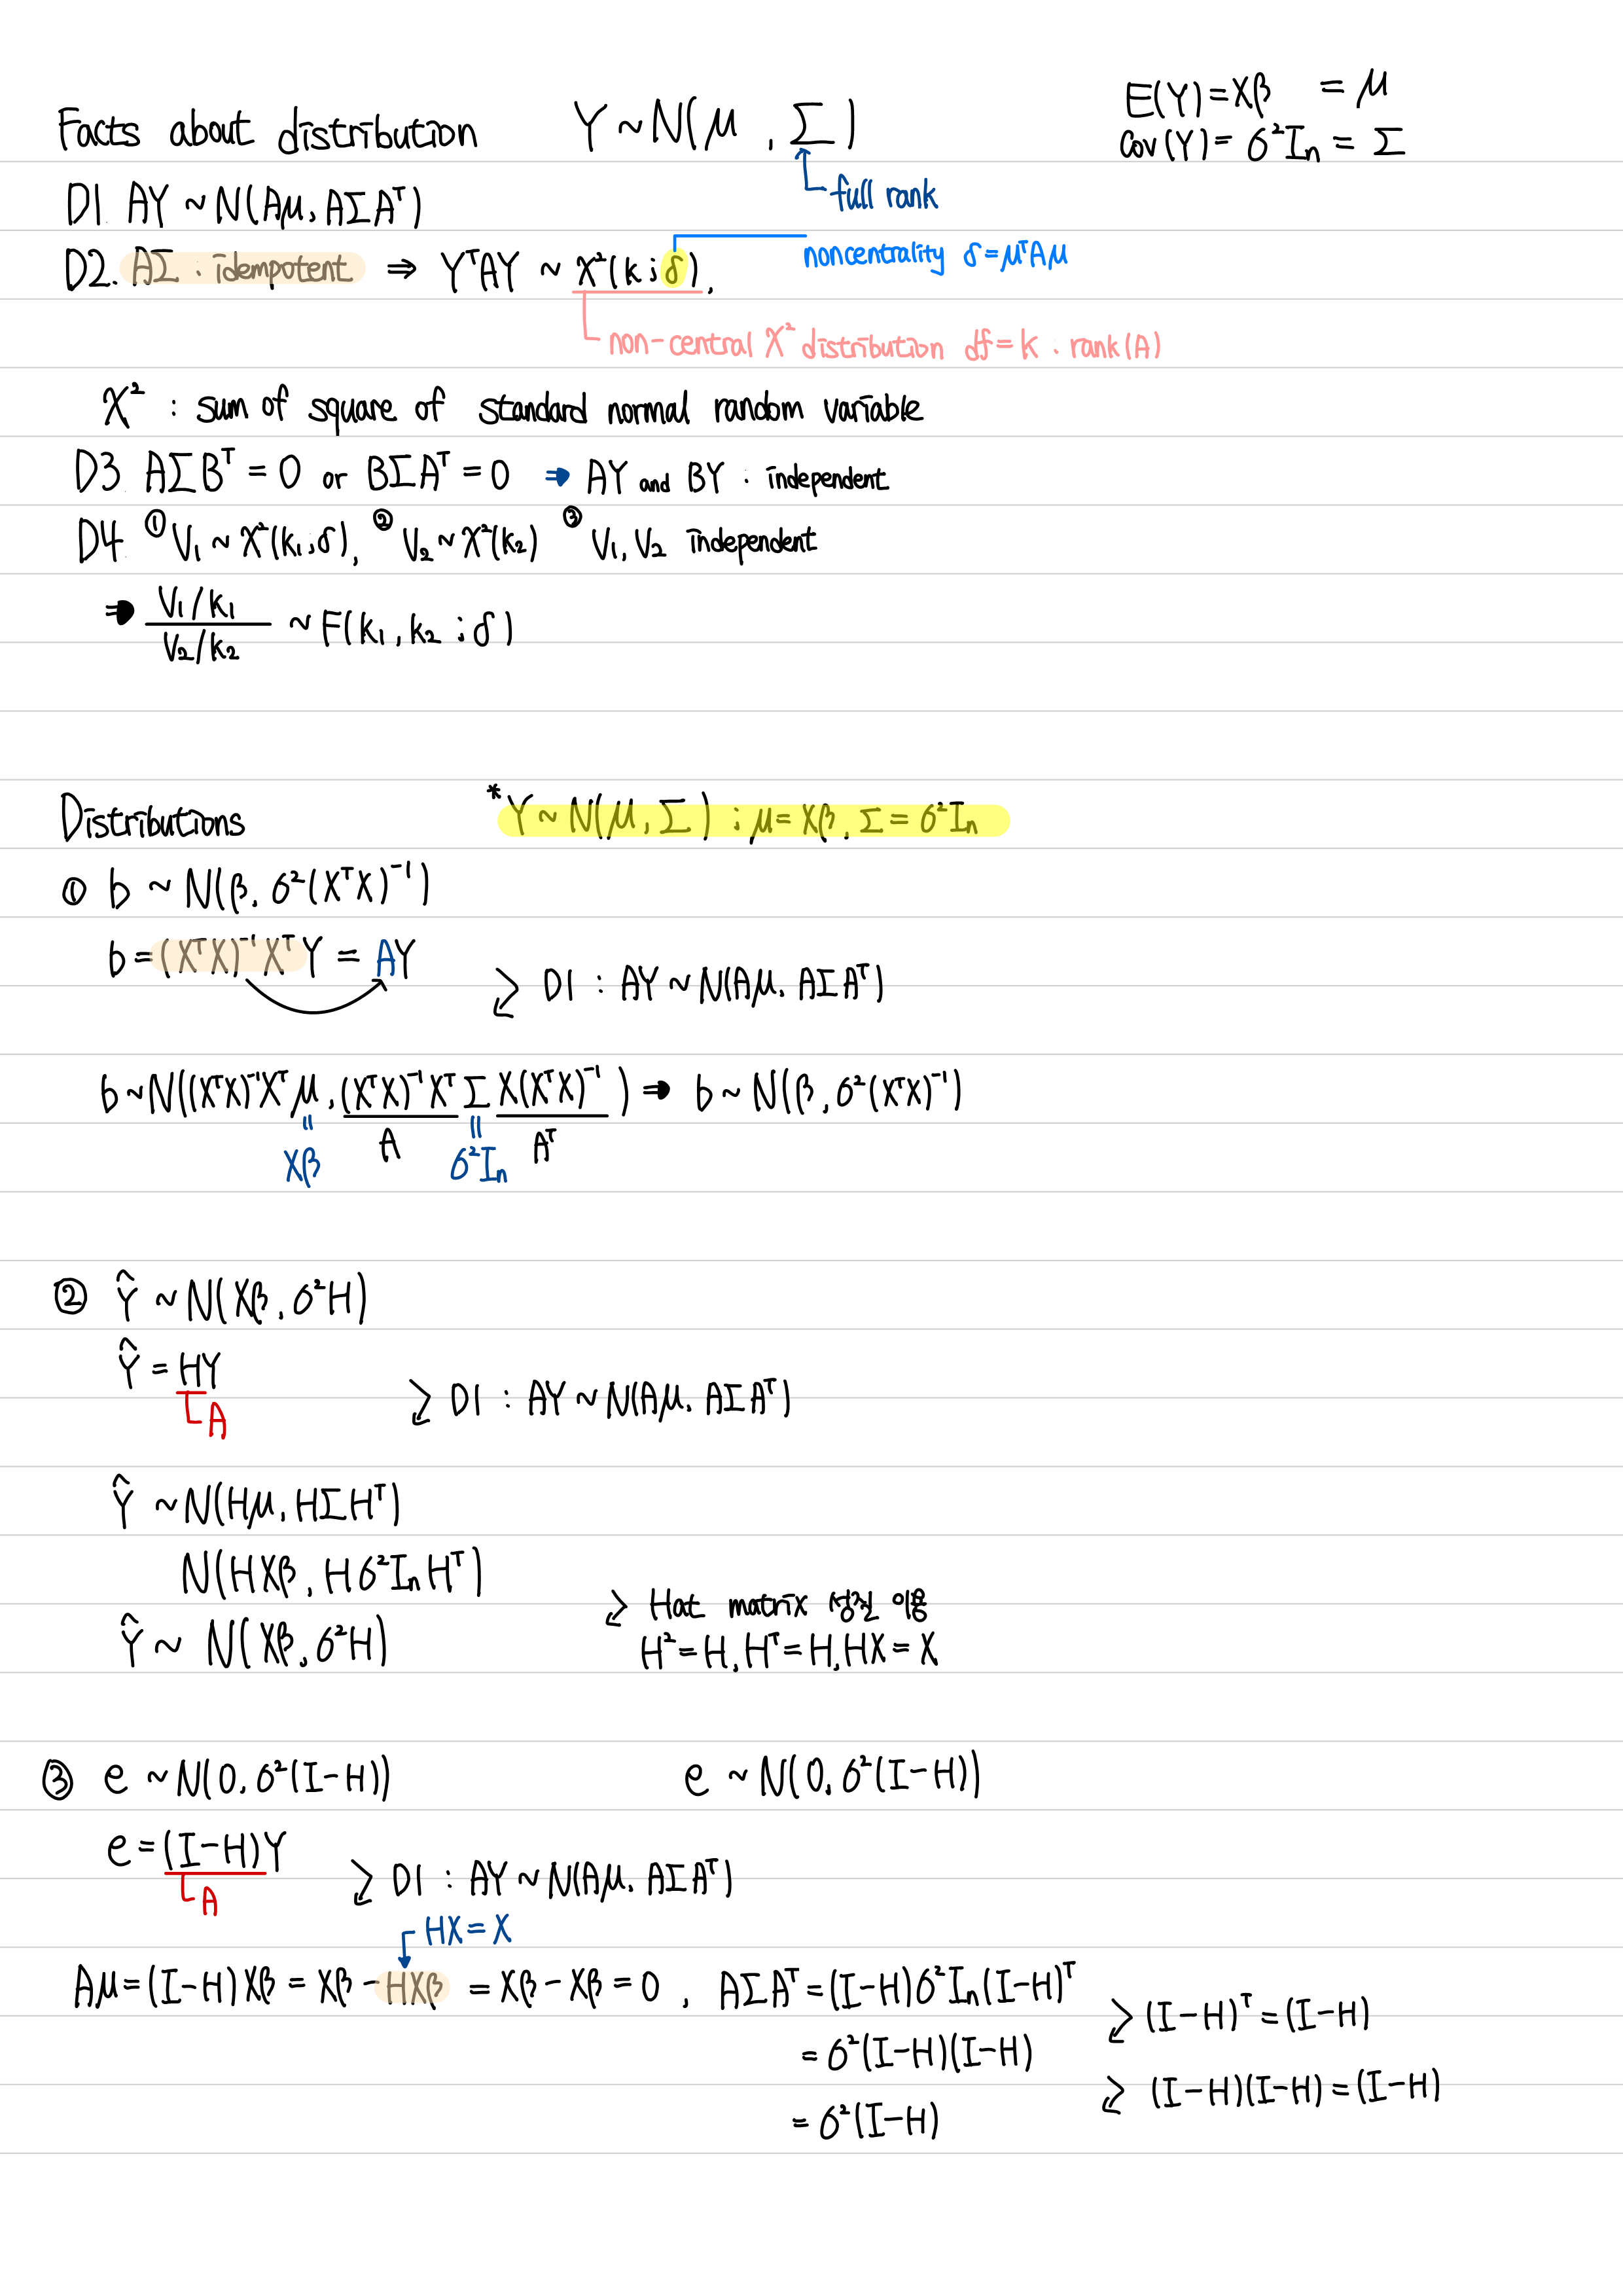 Facts about distribution Y ~ N(μ, Σ) E(Y) = Xβ = μ
Cov(Y) = σ²Iₙ = Σ
full rank
D1. AY ~ N(Aμ, AΣAᵀ)
D2. AΣ : idempotent ⇒ YᵀAY ~ χ²(k ; δ),
noncentrality δ = μᵀAμ
non-central χ² distribution df = k . rank(A)
χ² : sum of square of standard normal random variable
D3. AΣBᵀ = 0 or BΣAᵀ = 0 ⇒ AY and BY : independent
D4. ① V₁ ~ χ²(k₁;δ), ② V₂ ~ χ²(k₂) ③ V₁, V₂ independent
⇒ (V₁/k₁)/(V₂/k₂) ~ F(k₁, k₂ ; δ)
Distributions * Y ~ N(μ, Σ) ; μ = Xβ, Σ = σ²Iₙ
① b ~ N(β, σ²(XᵀX)⁻¹)
b = (XᵀX)⁻¹XᵀY = AY
D1 : AY ~ N(Aμ, AΣAᵀ)
b ~ N((XᵀX)⁻¹Xᵀμ, (XᵀX)⁻¹XᵀΣX(XᵀX)⁻¹) ⇒ b ~ N(β, σ²(XᵀX)⁻¹)
= =
Xβ A σ²Iₙ Aᵀ
② Ŷ ~ N(Xβ, σ²H)
Ŷ = HY
A
D1 : AY ~ N(Aμ, AΣAᵀ)
Ŷ ~ N(Hμ, HΣHᵀ)
N(HXβ, Hσ²IₙHᵀ)
Hat matrix 성질 이용
Ŷ ~ N(Xβ, σ²H)
H² = H, Hᵀ = H, HX = X
③ e ~ N(0, σ²(I-H)) e ~ N(0, σ²(I-H))
e = (I-H)Y
A
D1 : AY ~ N(Aμ, AΣAᵀ)
HX = X
Aμ = (I-H)Xβ = Xβ - HXβ = Xβ - Xβ = 0, AΣAᵀ = (I-H)σ²Iₙ(I-H)ᵀ
(I-H)ᵀ = (I-H)
= σ²(I-H)(I-H)
(I-H)(I-H) = (I-H)
= σ²(I-H)